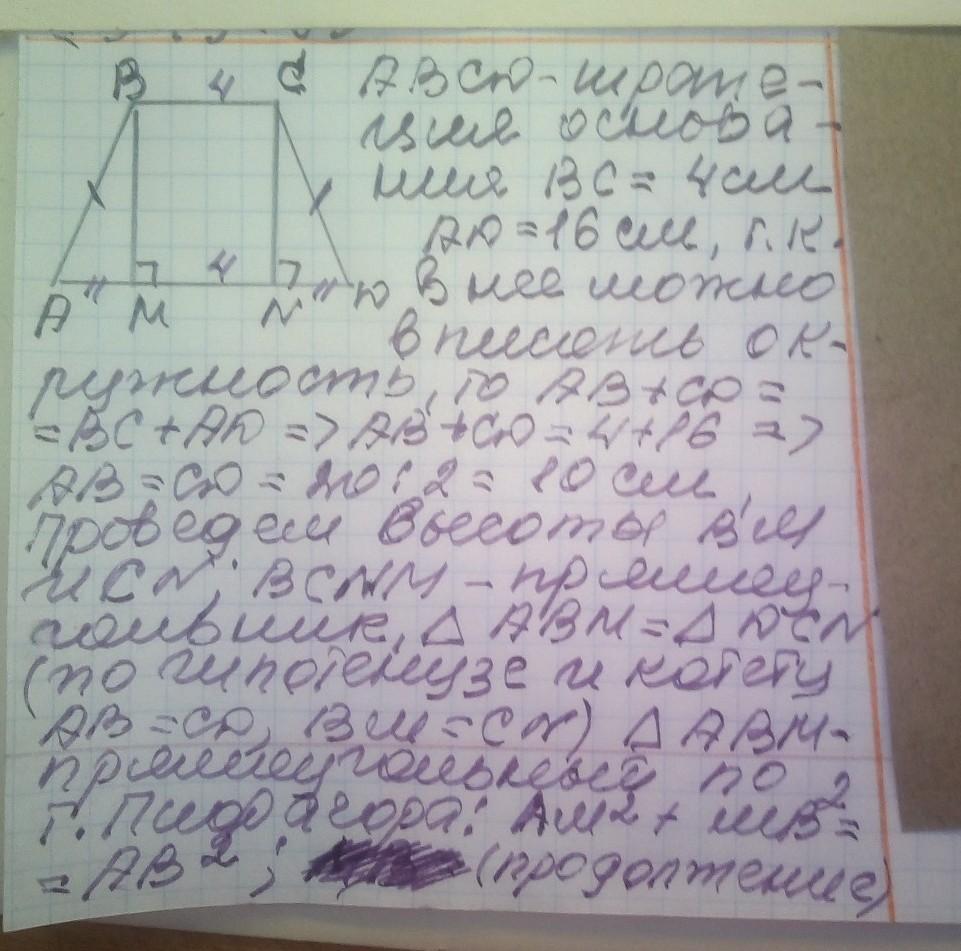 B 4 C
ABCD - трапе-
ция основа-
ния BC = 4 см
AD = 16 см, т.к.
A " M 4 N " D
в нее можно
вписать ок-
ружность, то AB + CD =
= BC + AD => AB + CD = 4 + 16 =>
AB = CD = 20 : 2 = 10 см,
Проведем высоты BM
и CN; BCNM - прямоуг-
гольник, Δ ABM = Δ DCN
(по гипотенузе и катету
AB = CD, BM = CN) Δ ABM -
прямоугольный по
т. Пифагора: AM² + MB² =
= AB²; (продолжение)